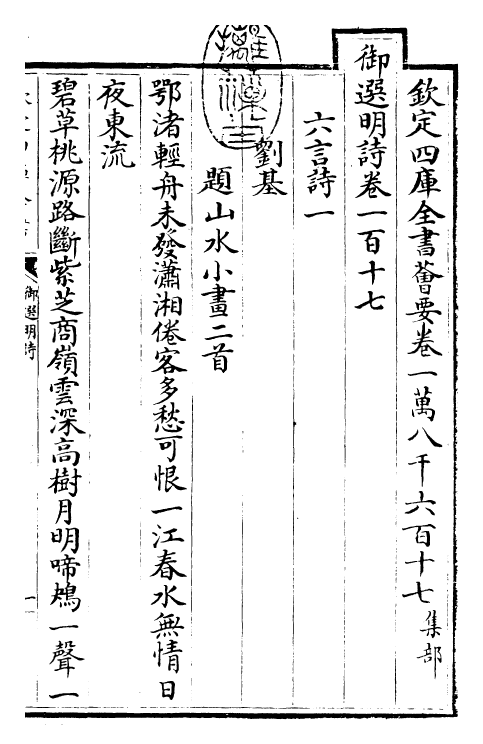 欽定四庫全書薈要卷一萬八千六百十七 集部
御選明詩卷一百十七
六言詩一
劉基
題山水小畫二首
鄂渚輕舟未發瀟湘倦客多愁可恨一江春水無情日
夜東流
碧草桃源路斷紫芝商嶺雲深高樹月明啼鴂一聲一
御選明詩
一